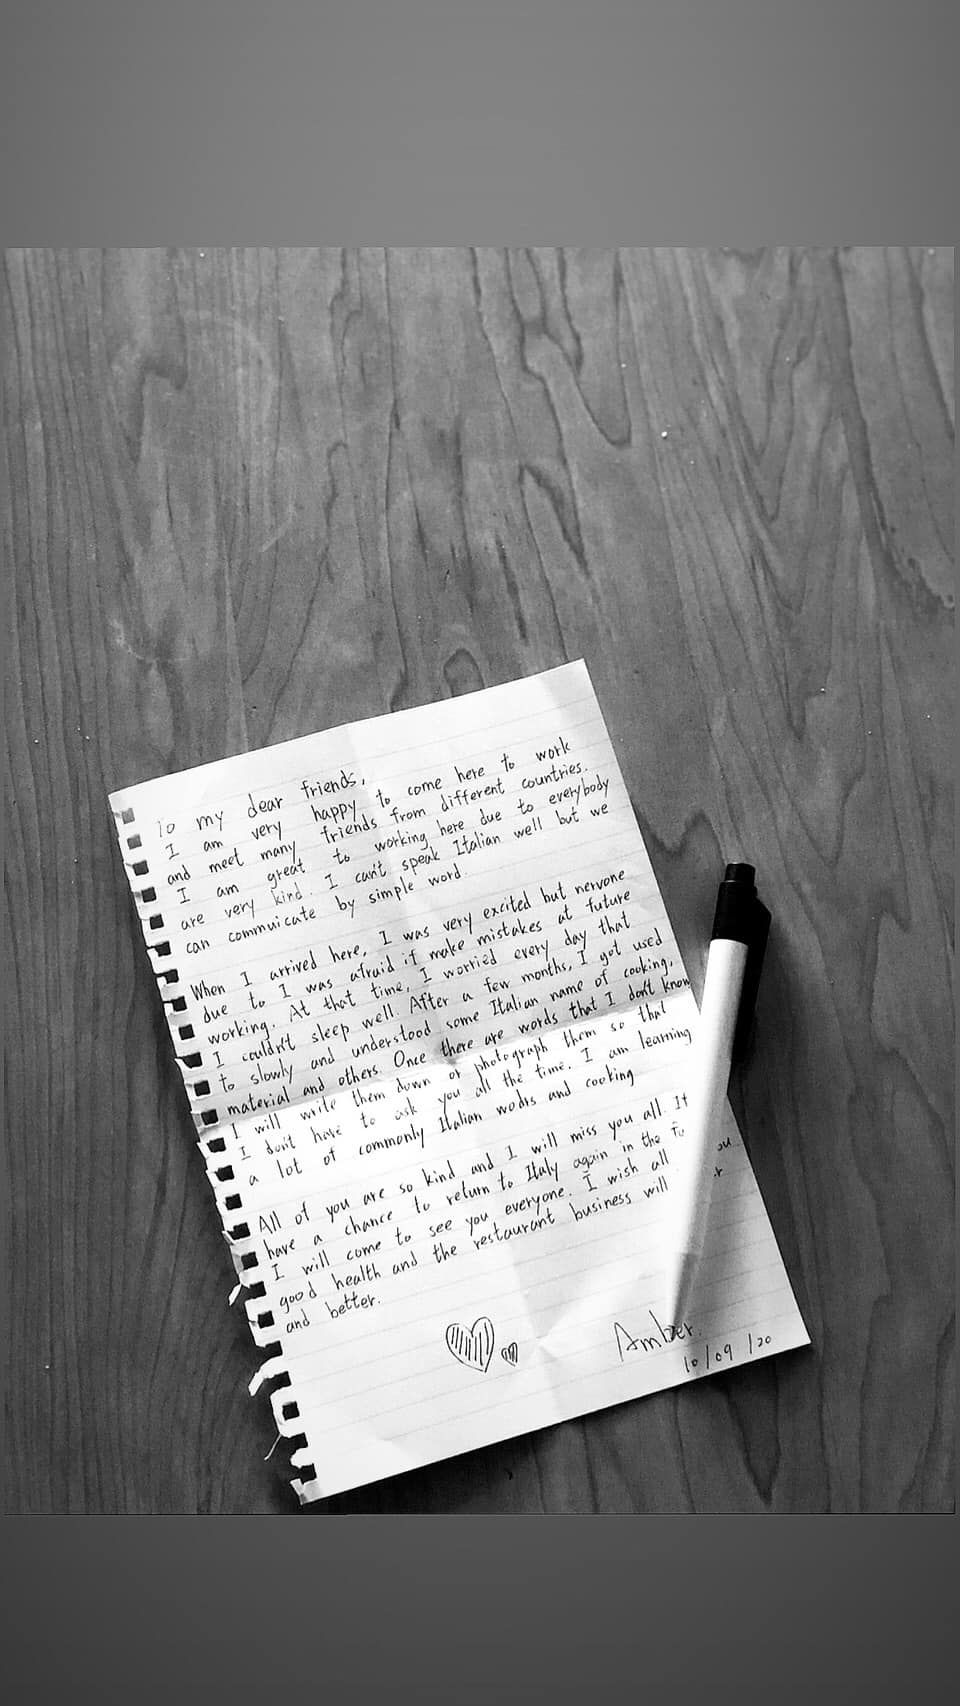 To my dear friends,
I am very happy to come here to work
and meet many friends from different countries.
I am great to working here due to everybody
are very kind. I can't speak Italian well but we
can commuicate by simple word.
When I arrived here, I was very excited but nervone
due to I was afraid if make mistakes at future
working. At that time, I worried every day that
I couldn't sleep well. After a few months, I got used
to slowly and understood some Italian name of cooking,
material and others. Once there are words that I don't know
I will write them down or photograph them so that
I don't have to ask you all the time. I am learning
a lot of commonly Italian wodrs and cooking
All of you are so kind and I will miss you all. If
have a chance to return to Italy again in the
I will come to see you everyone. I wish all
good health and the restaurant business will
and better.
Amber.
10/09/20